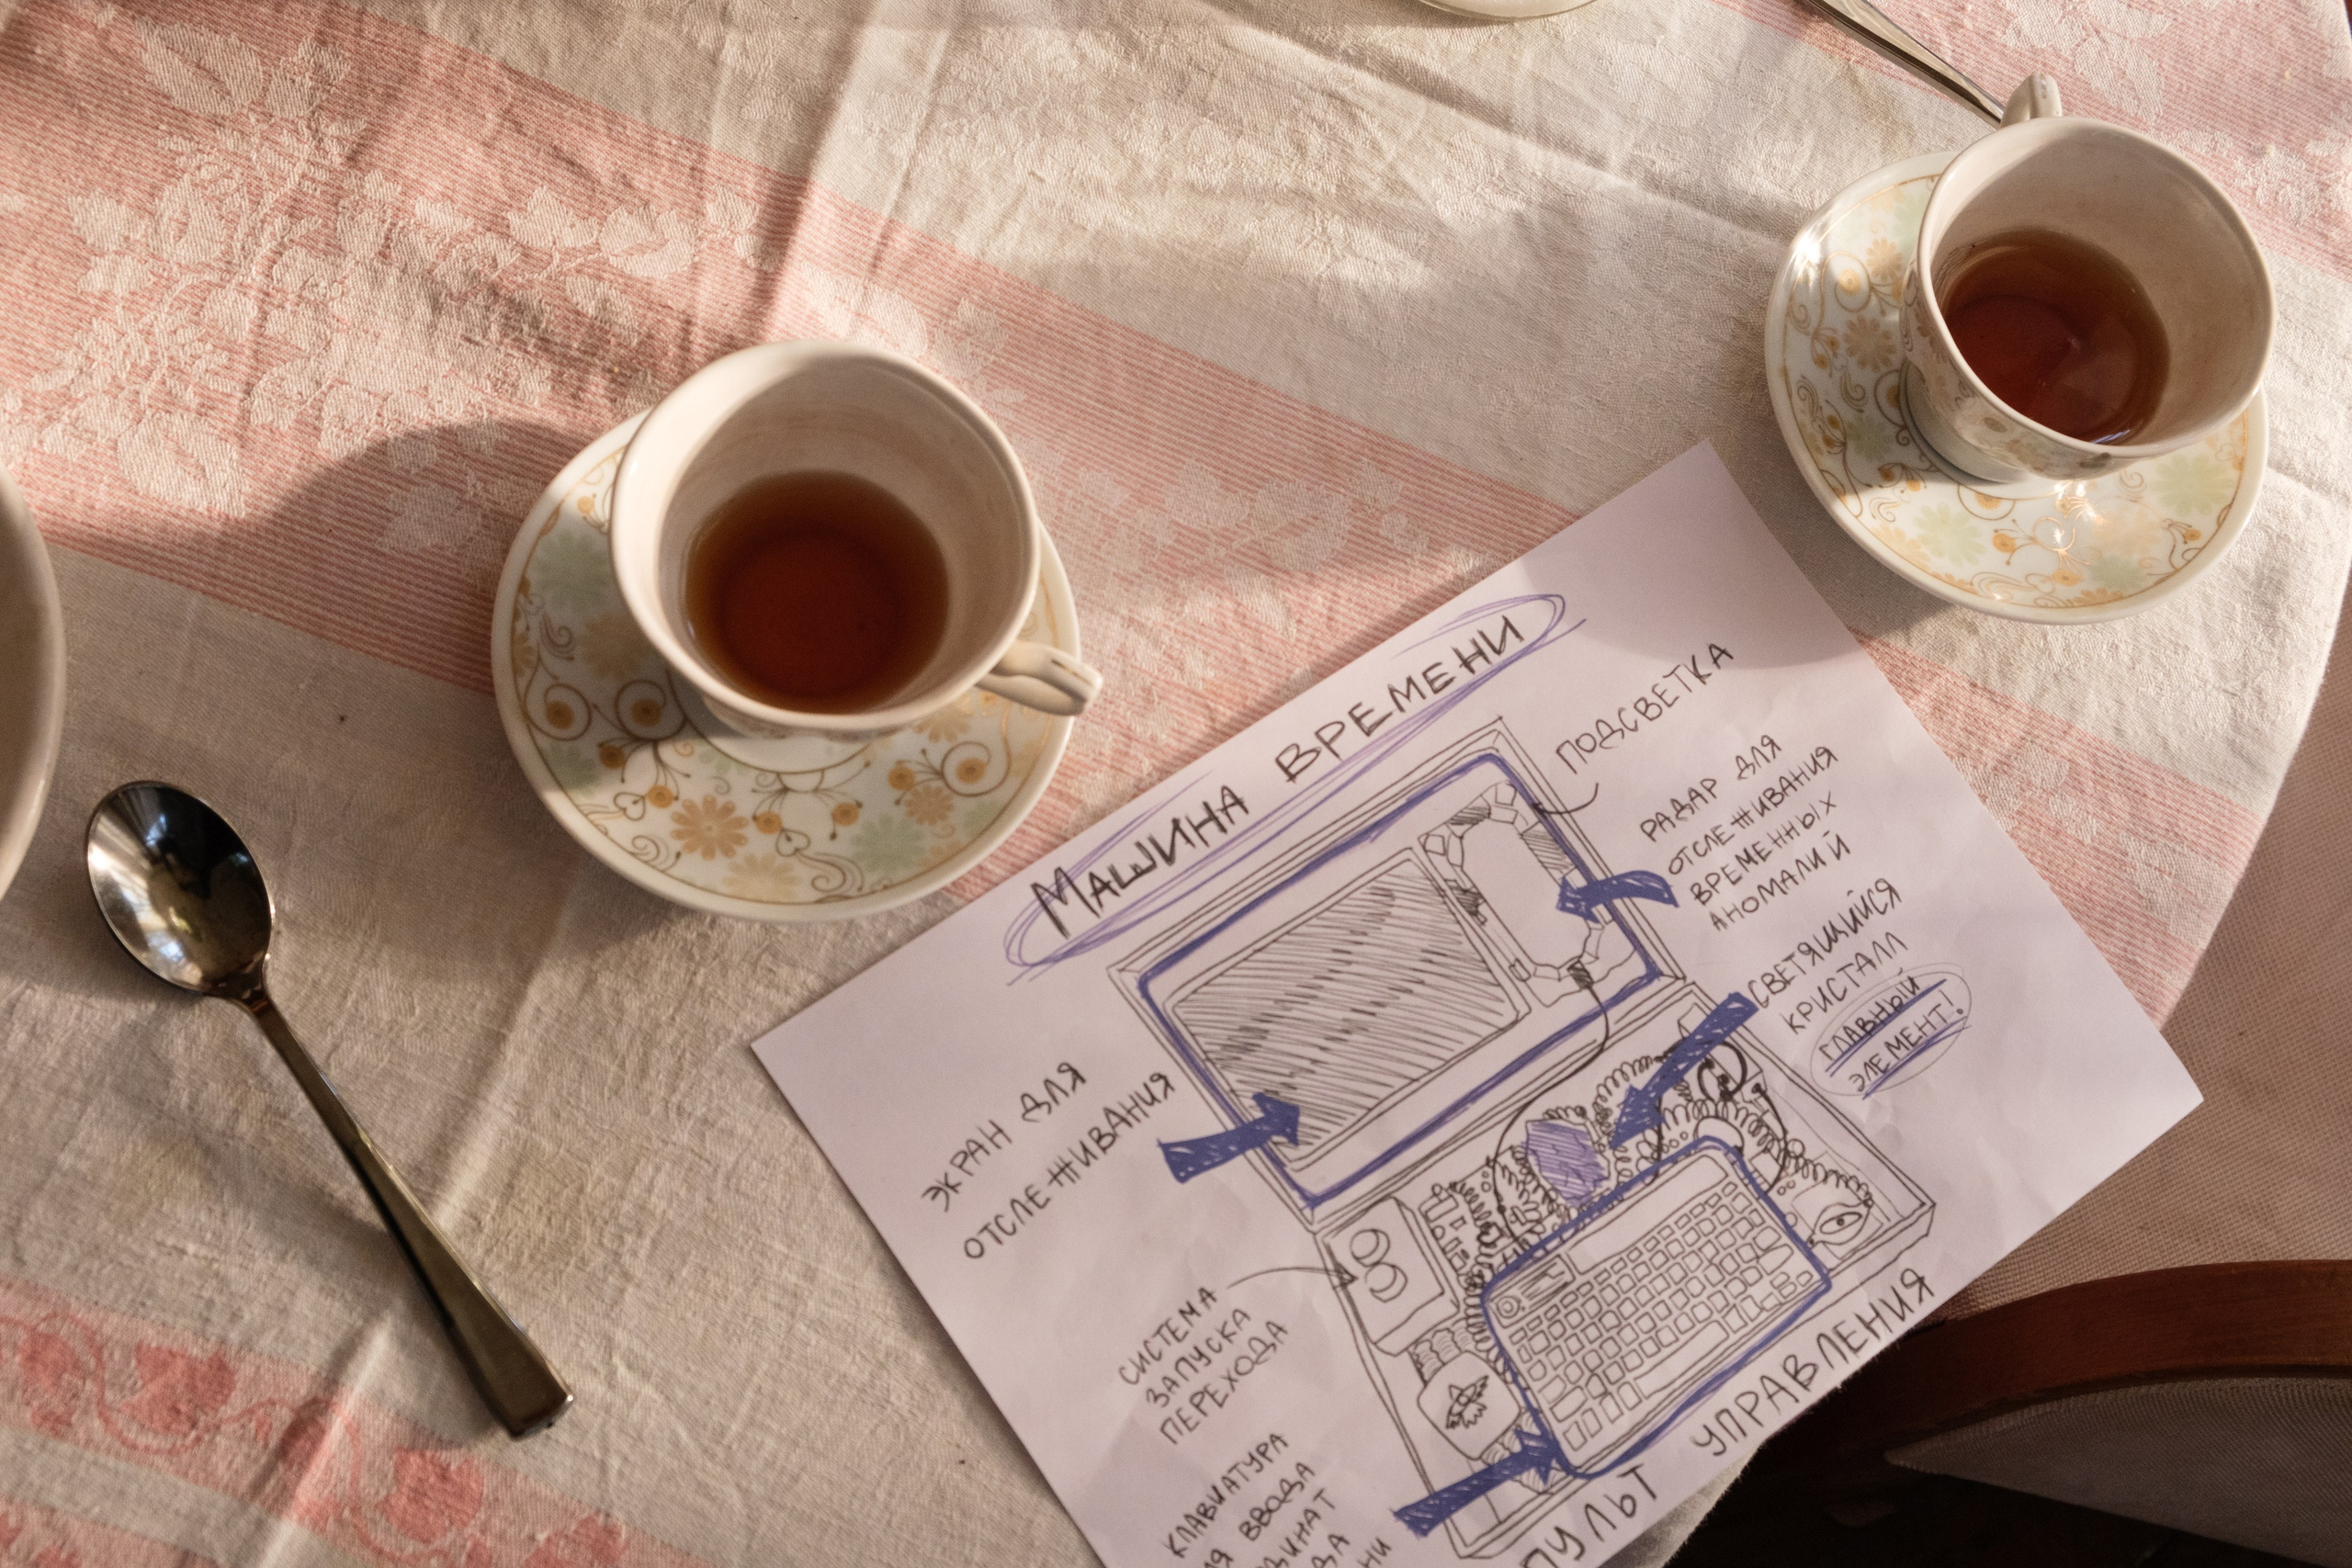 МАШИНА ВРЕМЕНИ
ПОДСВЕТКА
РАДАР ДЛЯ
ОТСЛЕЖИВАНИЯ
ВРЕМЕННЫХ
АНОМАЛИЙ
СВЕТЯЩИЙСЯ
КРИСТАЛЛ
ГЛАВНЫЙ
ЭЛЕМЕНТ!
ЭКРАН ДЛЯ
ОТСЛЕЖИВАНИЯ
СИСТЕМА
ЗАПУСКА
ПЕРЕХОДА
КЛАВИАТУРА
ВВОДА
ПУЛЬТ УПРАВЛЕНИЯ